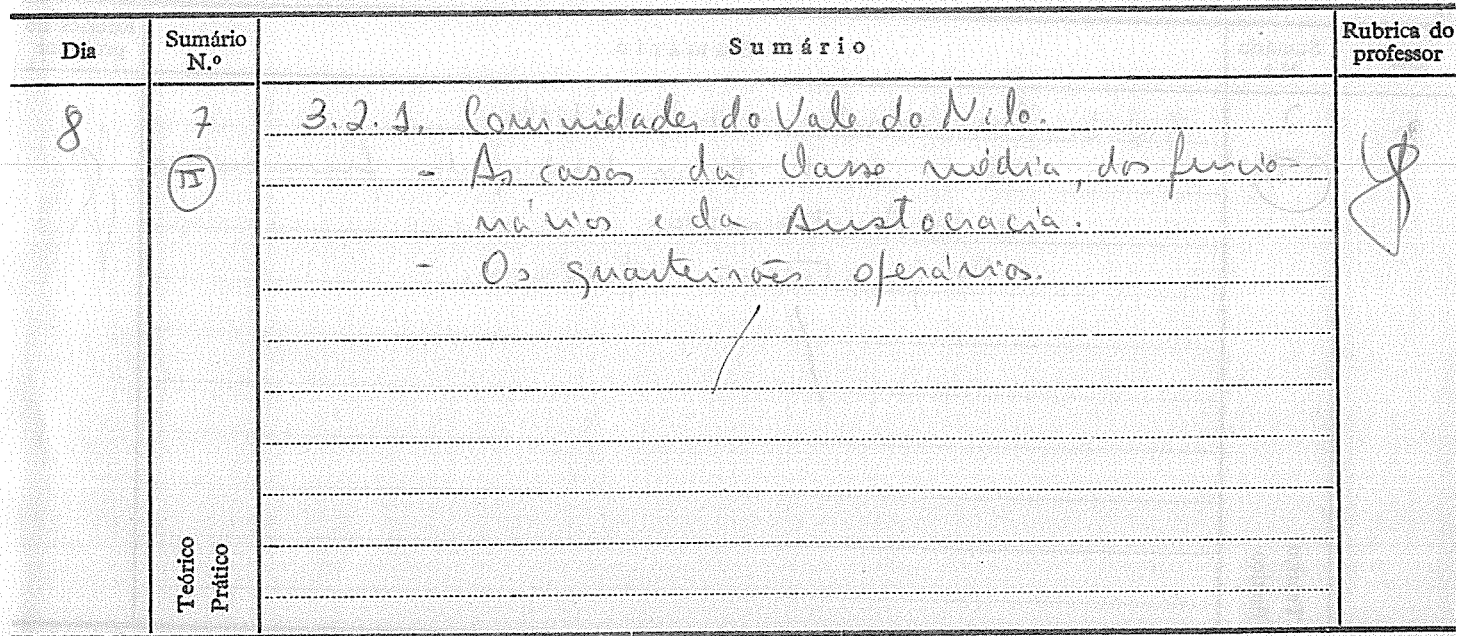 Dia
Sumário
N.º
Sumário
Rubrica do
professor
8
7
II
3.2.1. Comunidades do Vale do Nilo.
- As casas da classe média, dos funcio-
nários e da Aristocracia.
- Os quarteirões operários.
Teórico
Prático